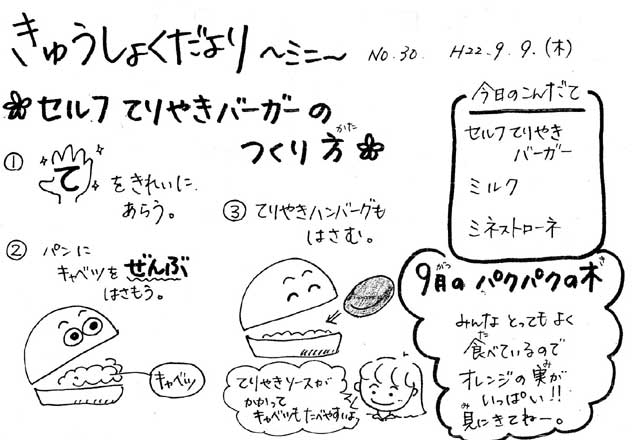 きゅうしょくだより 〜ミニ〜 No.30. H22.9.9.(木)
セルフ てりやきバーガーの
つくり方
かた
今日のこんだて
セルフてりやき
バーガー
ミルク
ミネストローネ
① て をきれいに
あらう。
② パンに
キャベツをぜんぶ
はさもう。
キャベツ
③ てりやきハンバーグも
はさむ。
てりやきソースが
かかって
キャベツもたべやすいよ
9月のパクパクの木
がつ
き
みんなとってもよく
食べているので
た
オレンジの実が
み
いっぱい!!
見にきてねー。
み